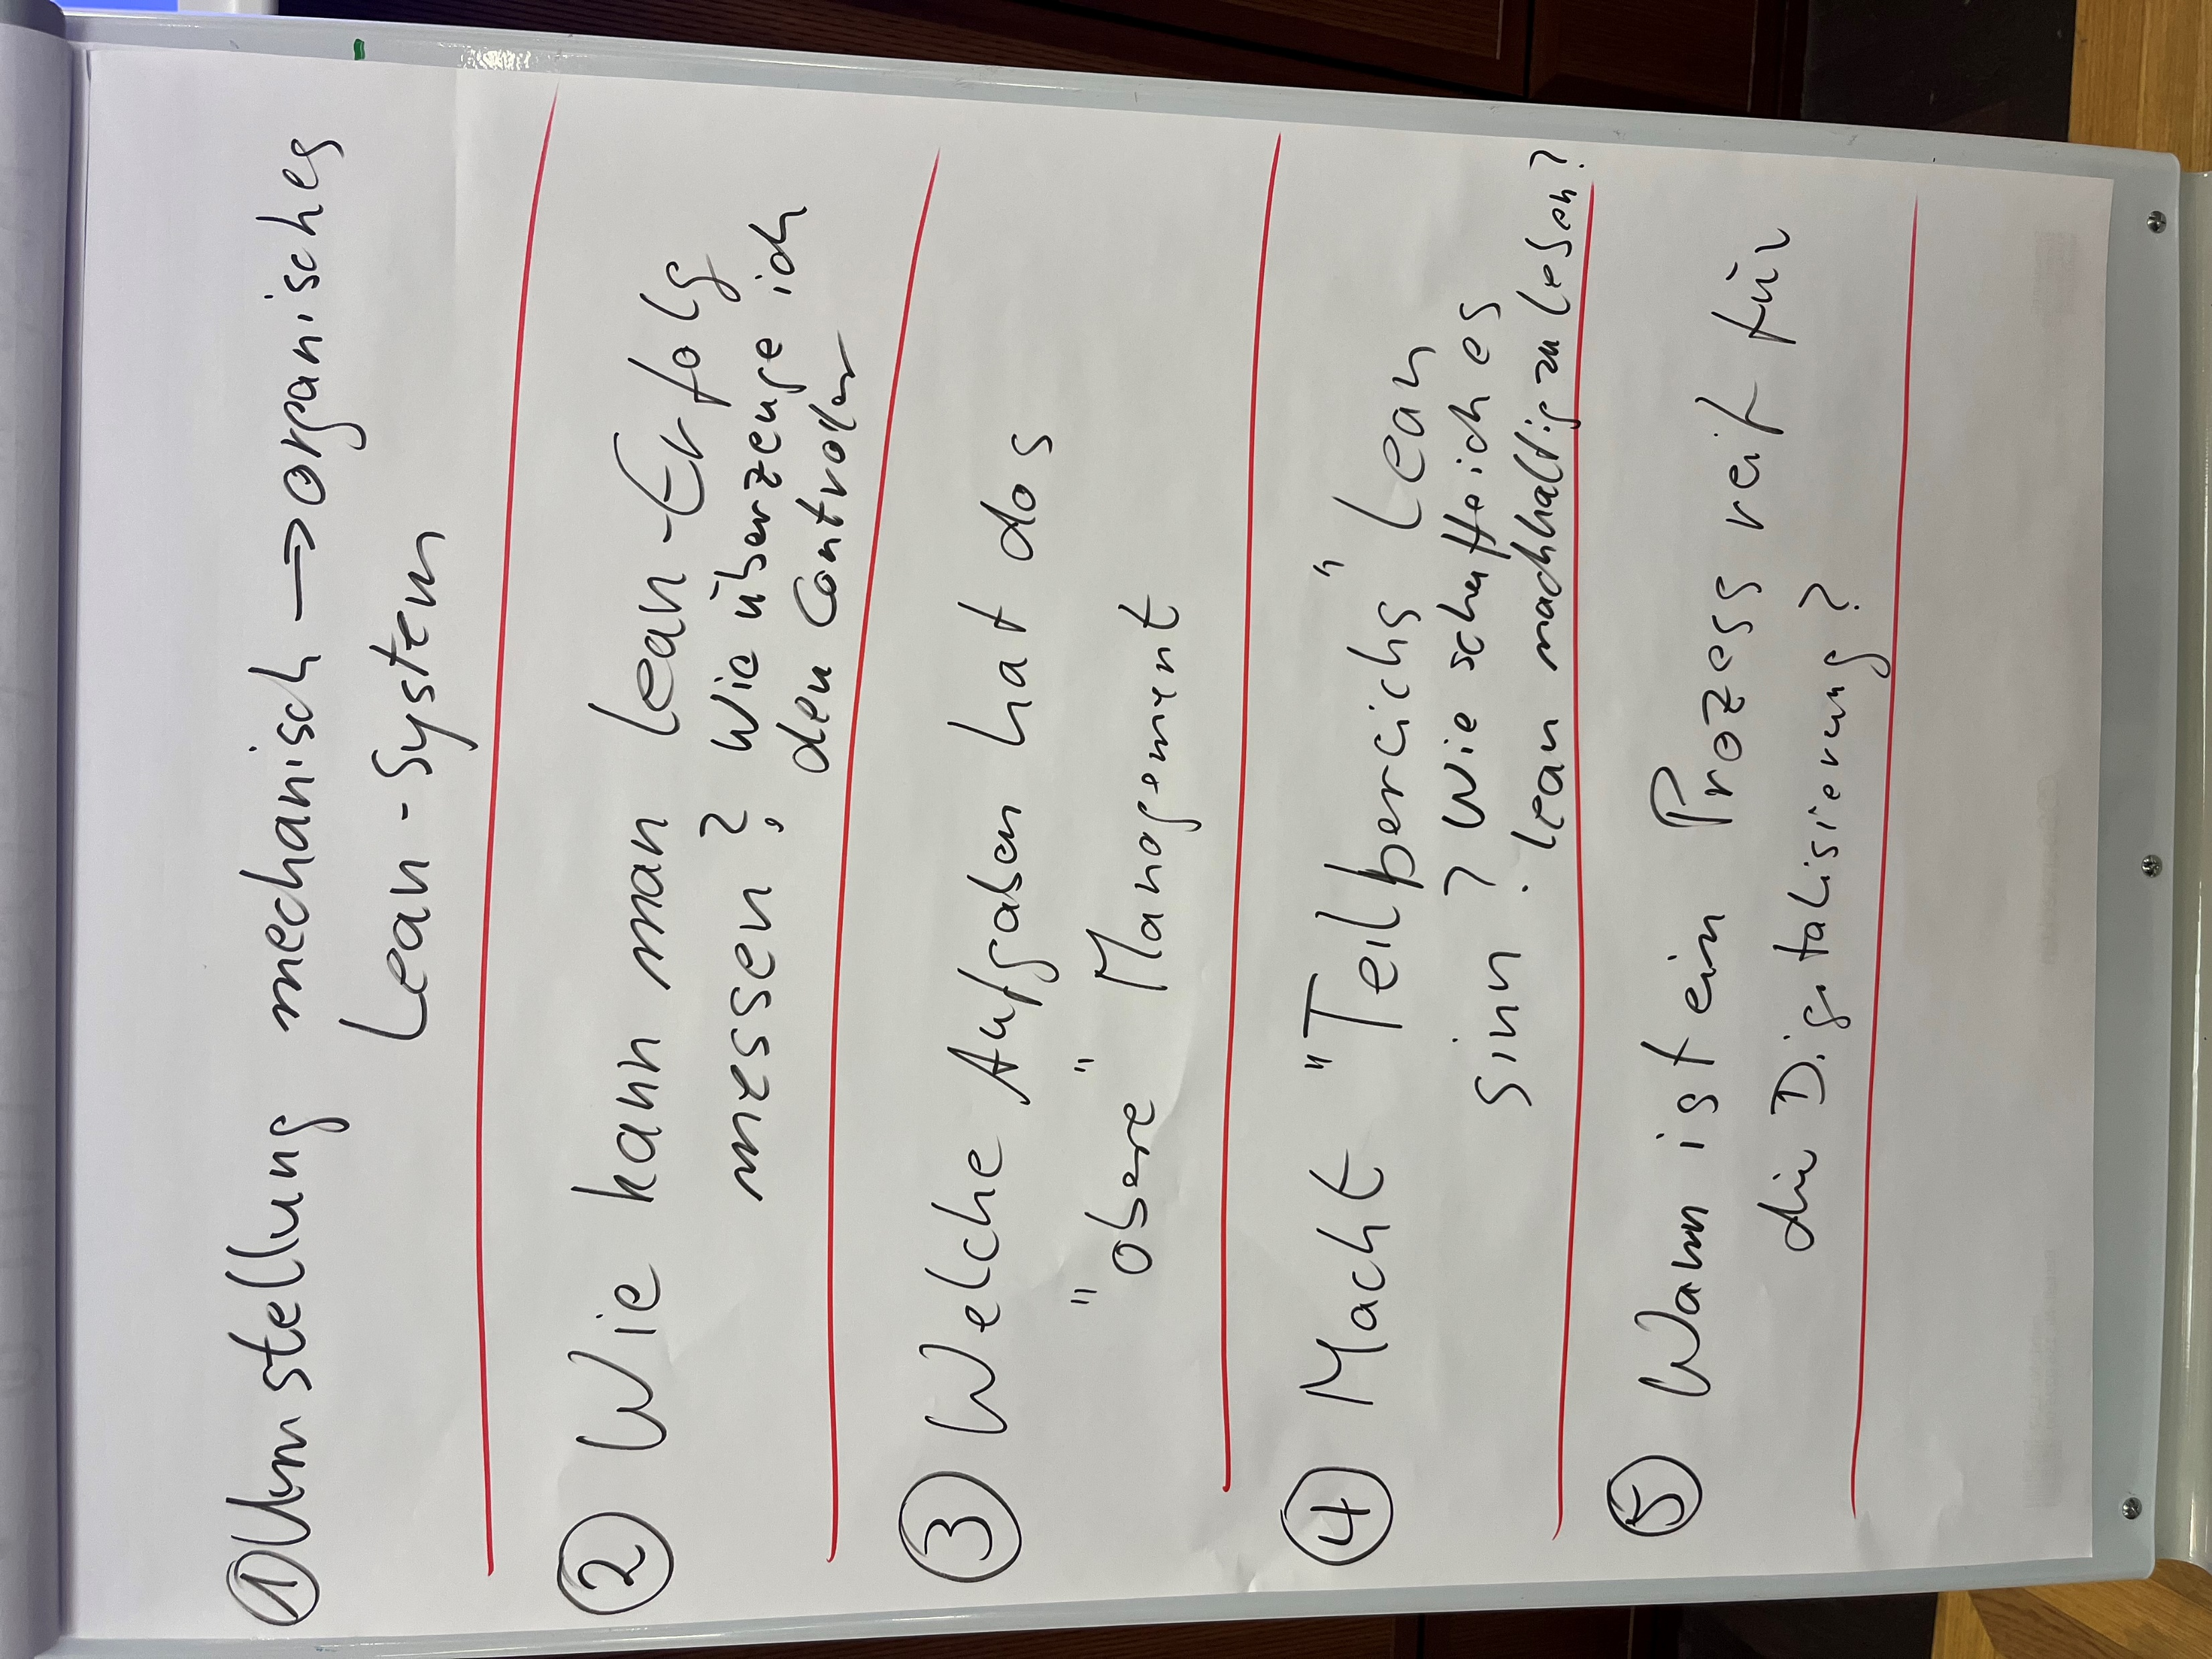 ① Umstellung mechanisch → organisches
Lean-System
② Wie kann man Lean-Erfolg
messen? Wie überzeuge ich
den Controller
③ Welche Aufgaben hat das
"obere" Management
④ Macht "Teilbereichs" Lean
Sinn? Wie schaffe ich es
Lean nachhaltig zu leben?
⑤ Wann ist ein Prozess reif für
die Digitalisierung?